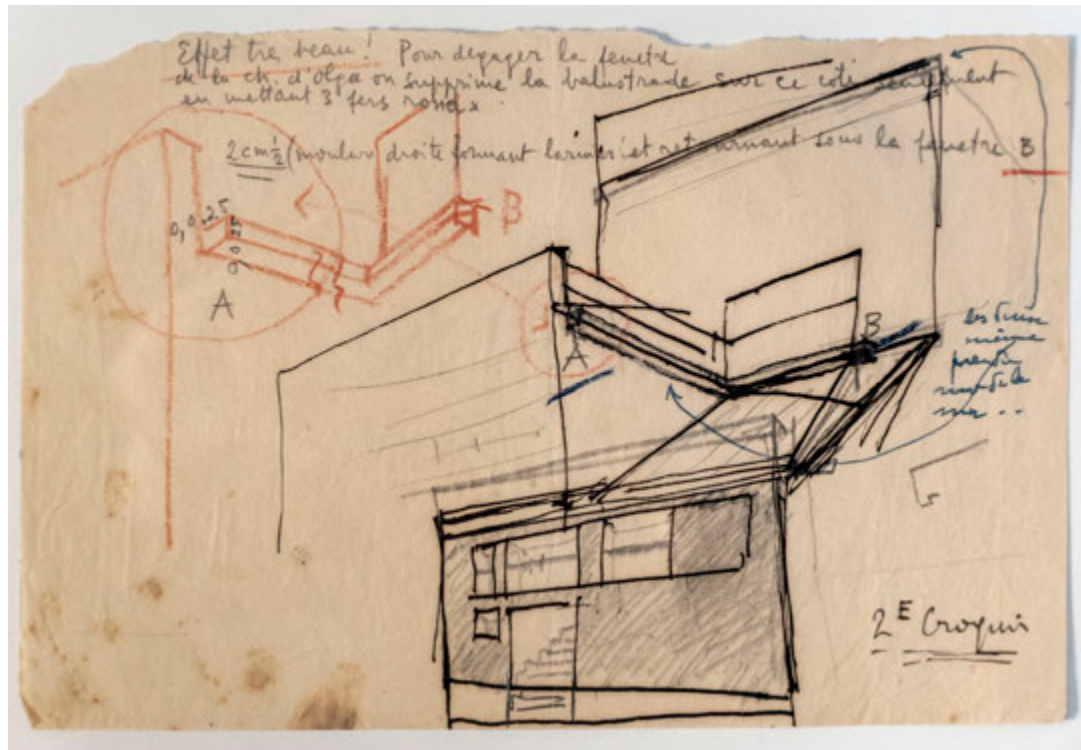 Effet tre beau ! Pour degager la fenetre
de la ch. d'olga on supprime la balustrade sur ce coté seulement
en mettant 3 fers ronds
2 cm ½ (moulure droite formant larmier et retournant sous la fenetre B
0,025
0,025
A
B
A
B
même
2E Croquis